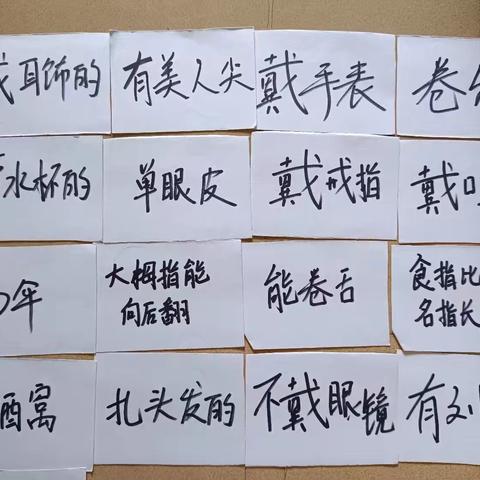 耳饰的
有美人尖
戴手表
卷
水杯的
单眼皮
戴戒指
戴
大拇指能
向后翻
能卷舌
食指比
名指长
酒窝
扎头发的
不戴眼镜
有